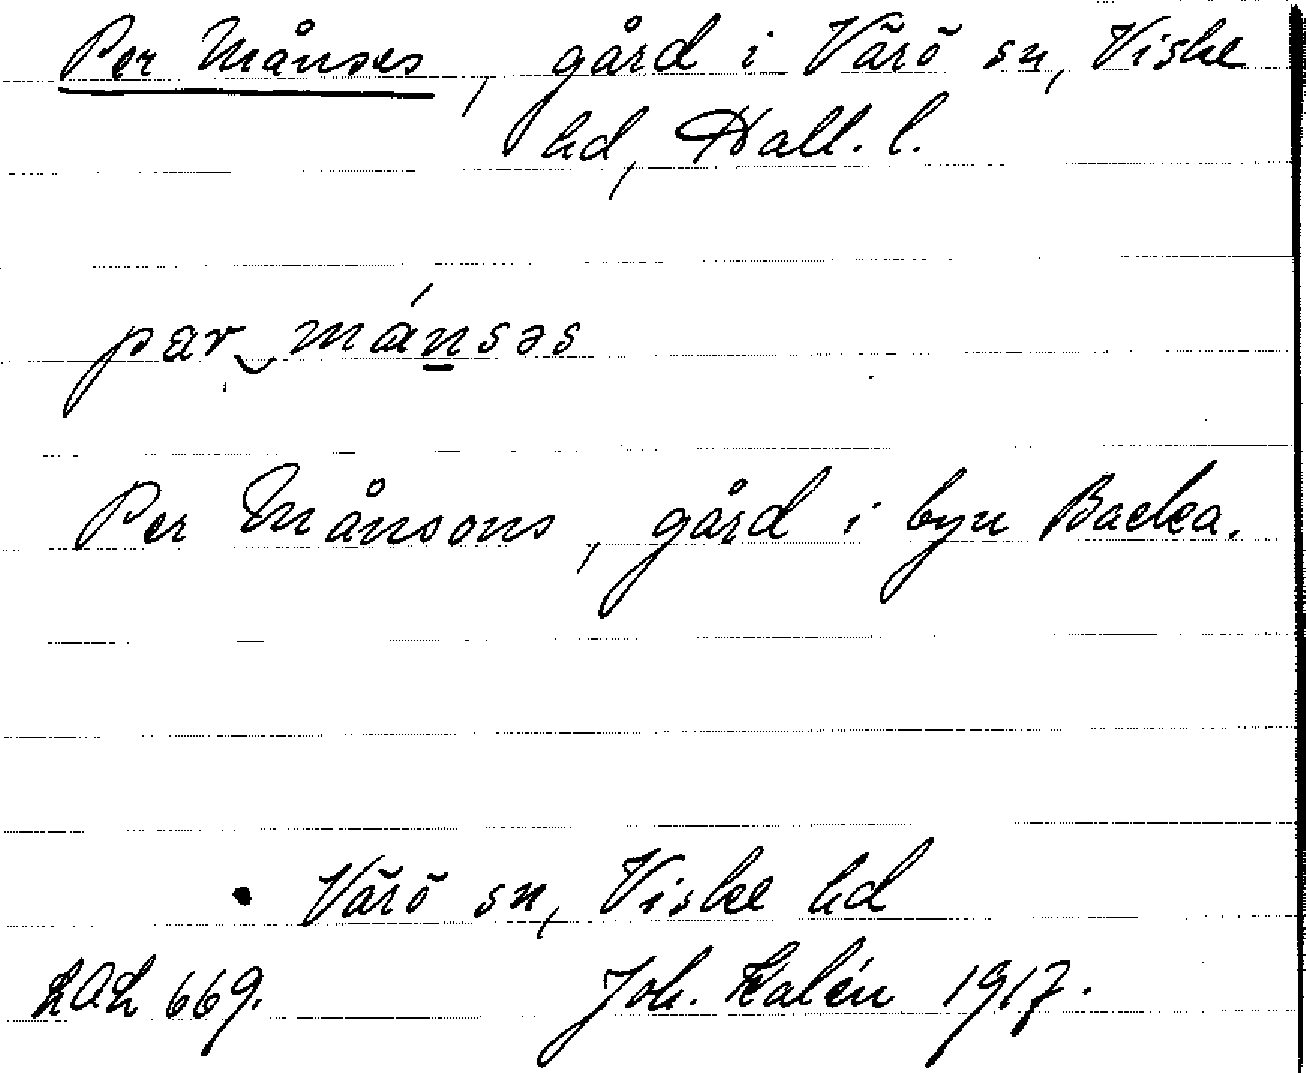 Per Månses, gård i Värö sn, Viske
hd, Hall. l.
pär‿mánsəs
Per Månsons, gård i byn Backa.
Värö sn, Viske hd
LAL 669. Joh. Kalén 1917.